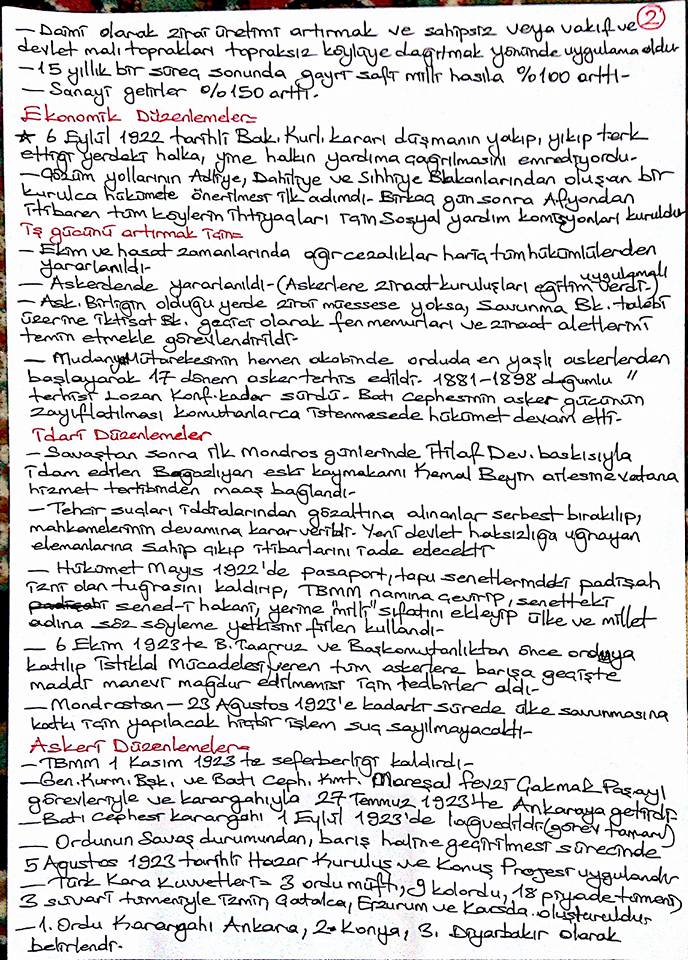 ②
- Daimi olarak zirai üretimi artırmak ve sahipsiz veya vakıf ve
devlet malı toprakları topraksız köylüye dağıtmak yönünde uygulama oldu
- 15 yıllık bir süreç sonunda gayri safi milli hasıla %100 arttı -
- Sanayi gelirler %150 arttı.
Ekonomik Düzenlemeler=
★ 6 Eylül 1922 tarihli Bak. Kurl. kararı düşmanın yakıp, yıkıp terk
ettiği yerdeki halka, yine halkın yardıma çağrılmasını emrediyordu-
- Çözüm yollarının Adliye, Dahiliye ve Sıhhiye Bakanlarından oluşan bir
kurulca hükümete önerilmesi ilk adımdı- Birkaç gün sonra Afyondan
itibaren tüm köylerin ihtiyaçları için Sosyal yardım komisyonları kuruldu
İş gücünü artırmak için=
- Ekim ve hasat zamanlarında ağır cezalıklar hariç tüm hükümlülerden
yararlanıldı-
- Askerdende yararlanıldı- (Askerlere ziraat kuruluşları uygulamalı eğitim verdi-)
- Ask. Birliğin olduğu yerde zirai müessese yoksa, Savunma Bk. talebi
üzerine İktisat Bk. geçici olarak fen memurları ve ziraat aletlerini
temin etmekle görevlendirildi-
- Mudanya Mütarekesinin hemen akabinde orduda en yaşlı askerlerden
başlayarak 17 dönem asker terhis edildi- 1881-1898 doğumlu "
terhisi Lozan Konf. kadar sürdü- Batı Cephesinin asker gücünün
zayıflatılması komutanlarca istenmesede hükümet devam etti-
İdari Düzenlemeler
- Savaştan sonra ilk Mondros günlerinde İtilaf Dev. baskısıyla
idam edilen Bogazlıyan eski kaymakamı Kemal Beyin ailesine vatana
hizmet tertibinden maaş bağlandı-
- Tehcir suçları iddialarından gözaltına alınanlar serbest bırakılıp,
mahkemelerinin devamına karar verildi- Yeni devlet haksızlığa uğrayan
elemanlarına sahip çıkıp itibarlarını iade edecekti
- Hükümet Mayıs 1922'de pasaport, tapu senetlerindeki padişah
izni olan tuğrasını kaldırıp, TBMM namına çevirip, senetteki
padişahi sened-i hakani, yerine "milli" sıfatını ekleyip ülke ve millet
adına söz söyleme yetkisini fiilen kullandı-
- 6 Ekim 1923'te B. Taarruz ve Başkomutanlıktan önce orduya
katılıp İstiklal Mücadelesi veren tüm askerlere barışa geçişte
maddi manevi mağdur edilmemesi için tedbirler aldı-
- Mondrostan - 23 Ağustos 1923'e kadarki sürede ülke savunmasına
katkı için yapılacak hiçbir işlem suç sayılmayacaktı-
Askeri Düzenlemeler=
- TBMM 1 Kasım 1923'te seferberliği kaldırdı-
- Gen. Kurm. Bşk. ve Batı Ceph. Kmt. Mareşal Fevzi Çakmak Paşayı
görevleriyle ve karargahıyla 27 Temmuz 1923'te Ankaraya getirdi-
- Batı Cephesi karargahı 1 Eylül 1923'de lağvedildi (görev tamam)
- Ordunun Savaş durumundan, barış haline geçirilmesi sürecinde
5 Ağustos 1923 tarihli Hazar Kuruluş ve Konuş Projesi uygulandı
- Türk Kara Kuvvetleri= 3 ordu müfti, 9 kolordu, 18 piyade tümeni,
3 süvari tümeniyle İzmin, Çatalca, Erzurum ve Karsda oluşturuldu-
- 1. Ordu Karargahı Ankara, 2- Konya, 3. Diyarbakır olarak
belirlendi-